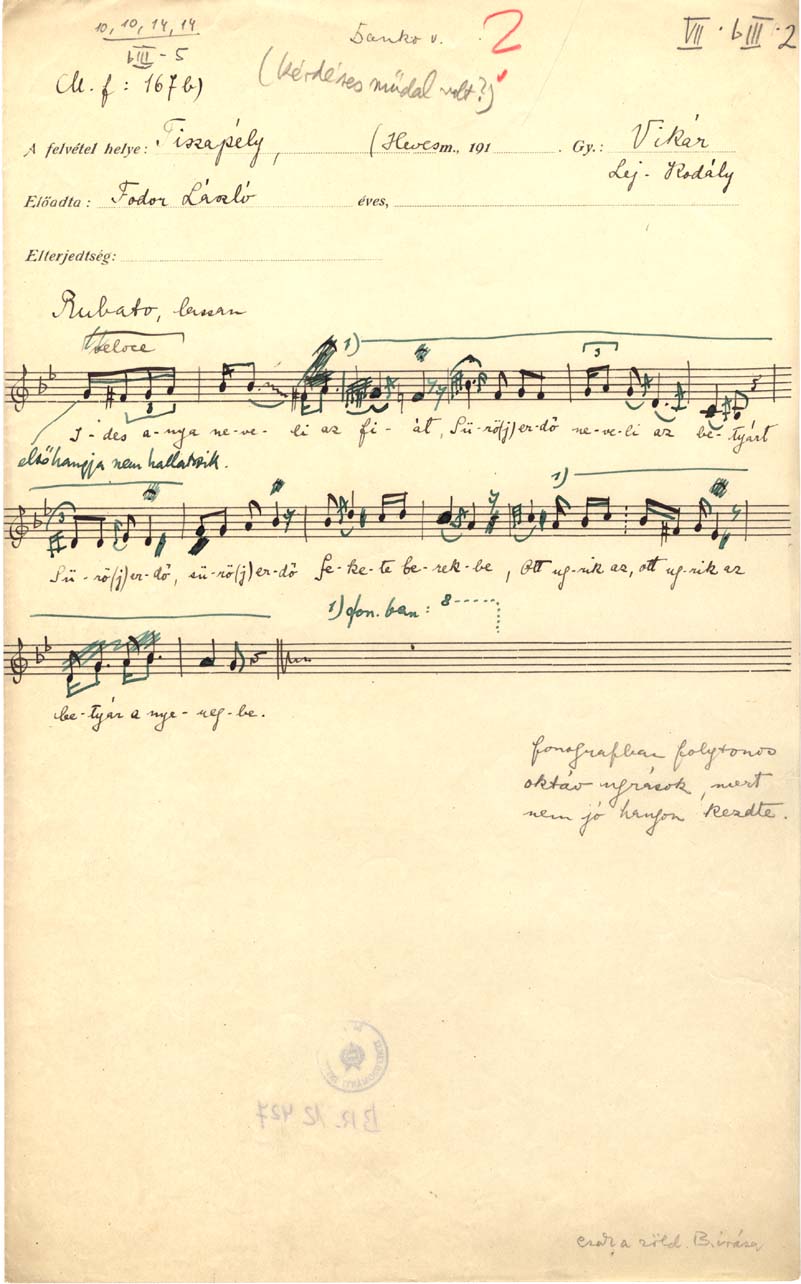 10, 10, 14, 14
bIII - 5
Dankó v.
2
VII · bIII · 2
M. f : 167 b)
(kérdéses műdal volt?)
A felvétel helye: Tiszapély, (Heves m., 191 . Gy.: Vikár
Lej. Kodály
Előadta: Fodor László éves,
Elterjedtség:
Rubato, lassan
veloce
1)
3
3
I - des a - nya ne - ve - li az fi - át, Sü - rö(j)er - dő ne - ve - li az be - tyárt
első hangja nem hallatszik.
3
1)
Sü - rö(j)er - dő, sü - rö(j)er - dő fe - ke - te be - rek - be, Ott ug - rik az, ott ug - rik az
1) fon. ban: 8
be - tyár a nye - reg - be.
fonografban folytonos
oktáv ugrások, mert
nem jó hangon kezdte.
BR. 12 427
csak a zöld B. írása